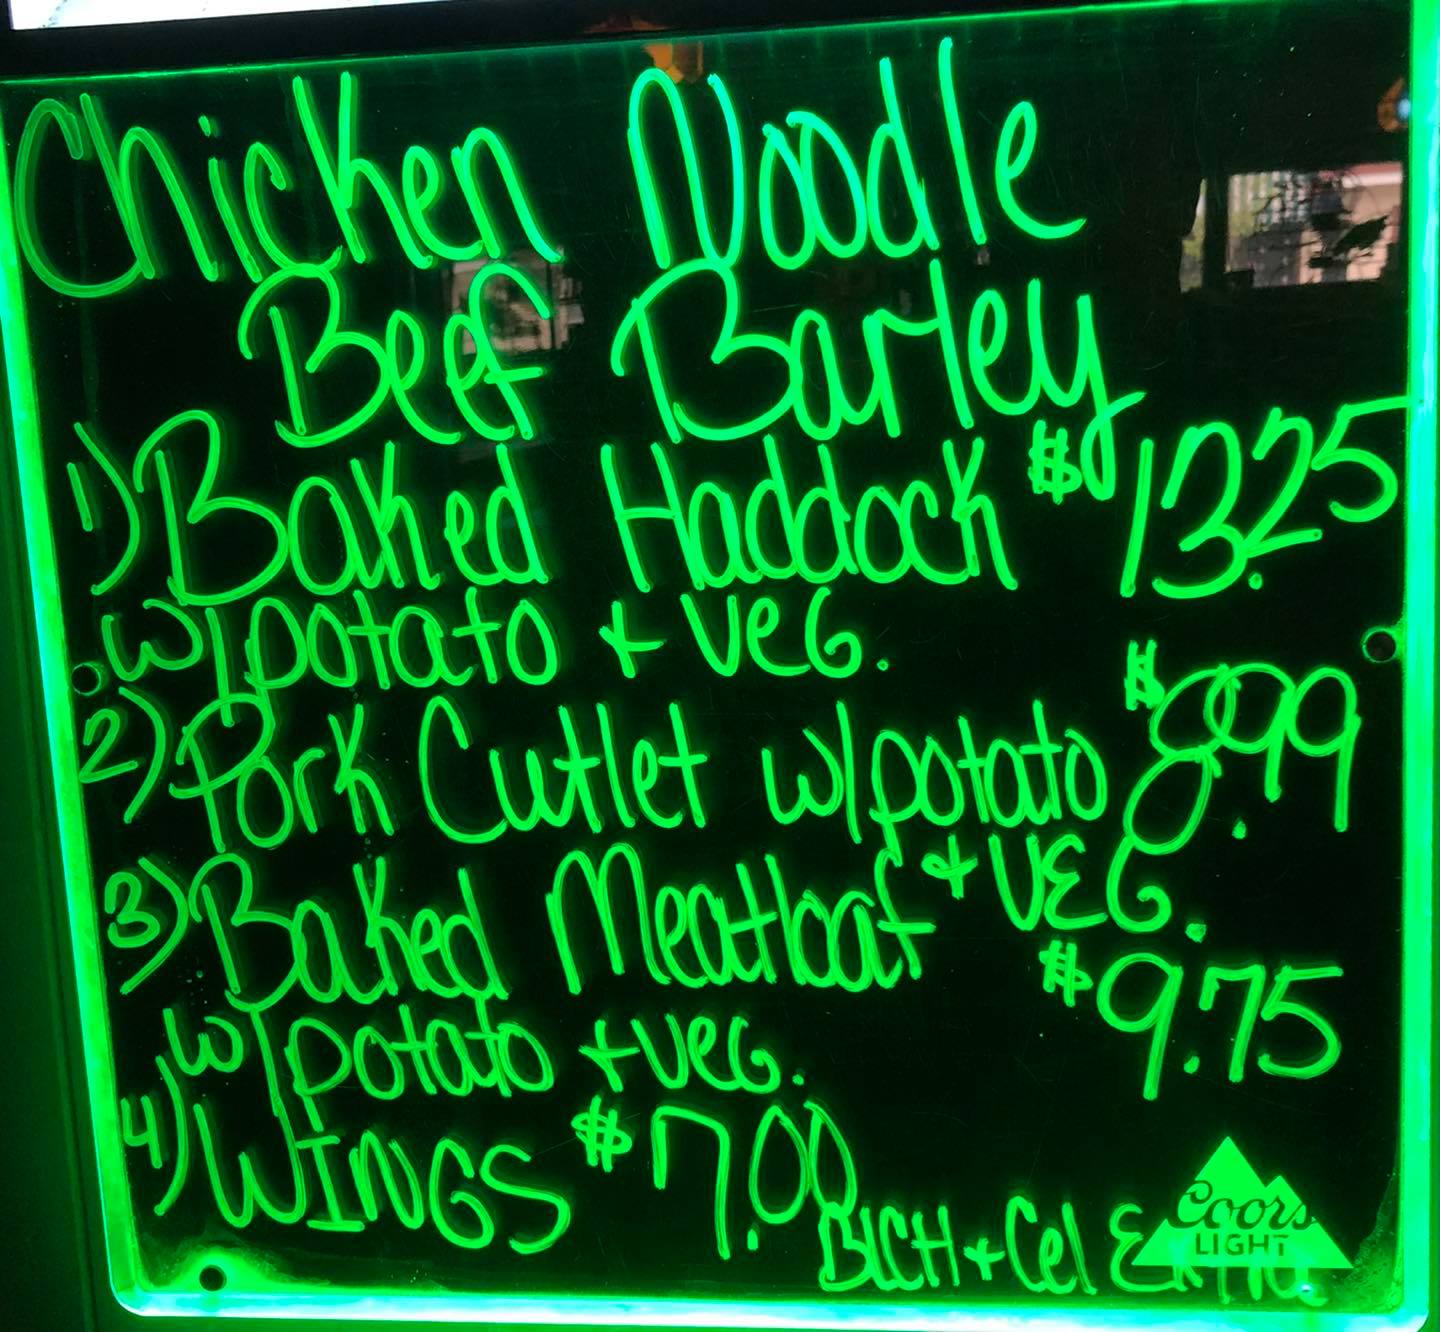 Chicken Noodle
Beef Barley
1) Baked Haddock $13.25
w/potato + veG.
2) Pork Cutlet w/potato $8.99
+ VEG.
3) Baked Meatloaf $9.75
w/potato + veG.
4) WINGS $7.00
BlCH + Cel Extra
Coors
LIGHT